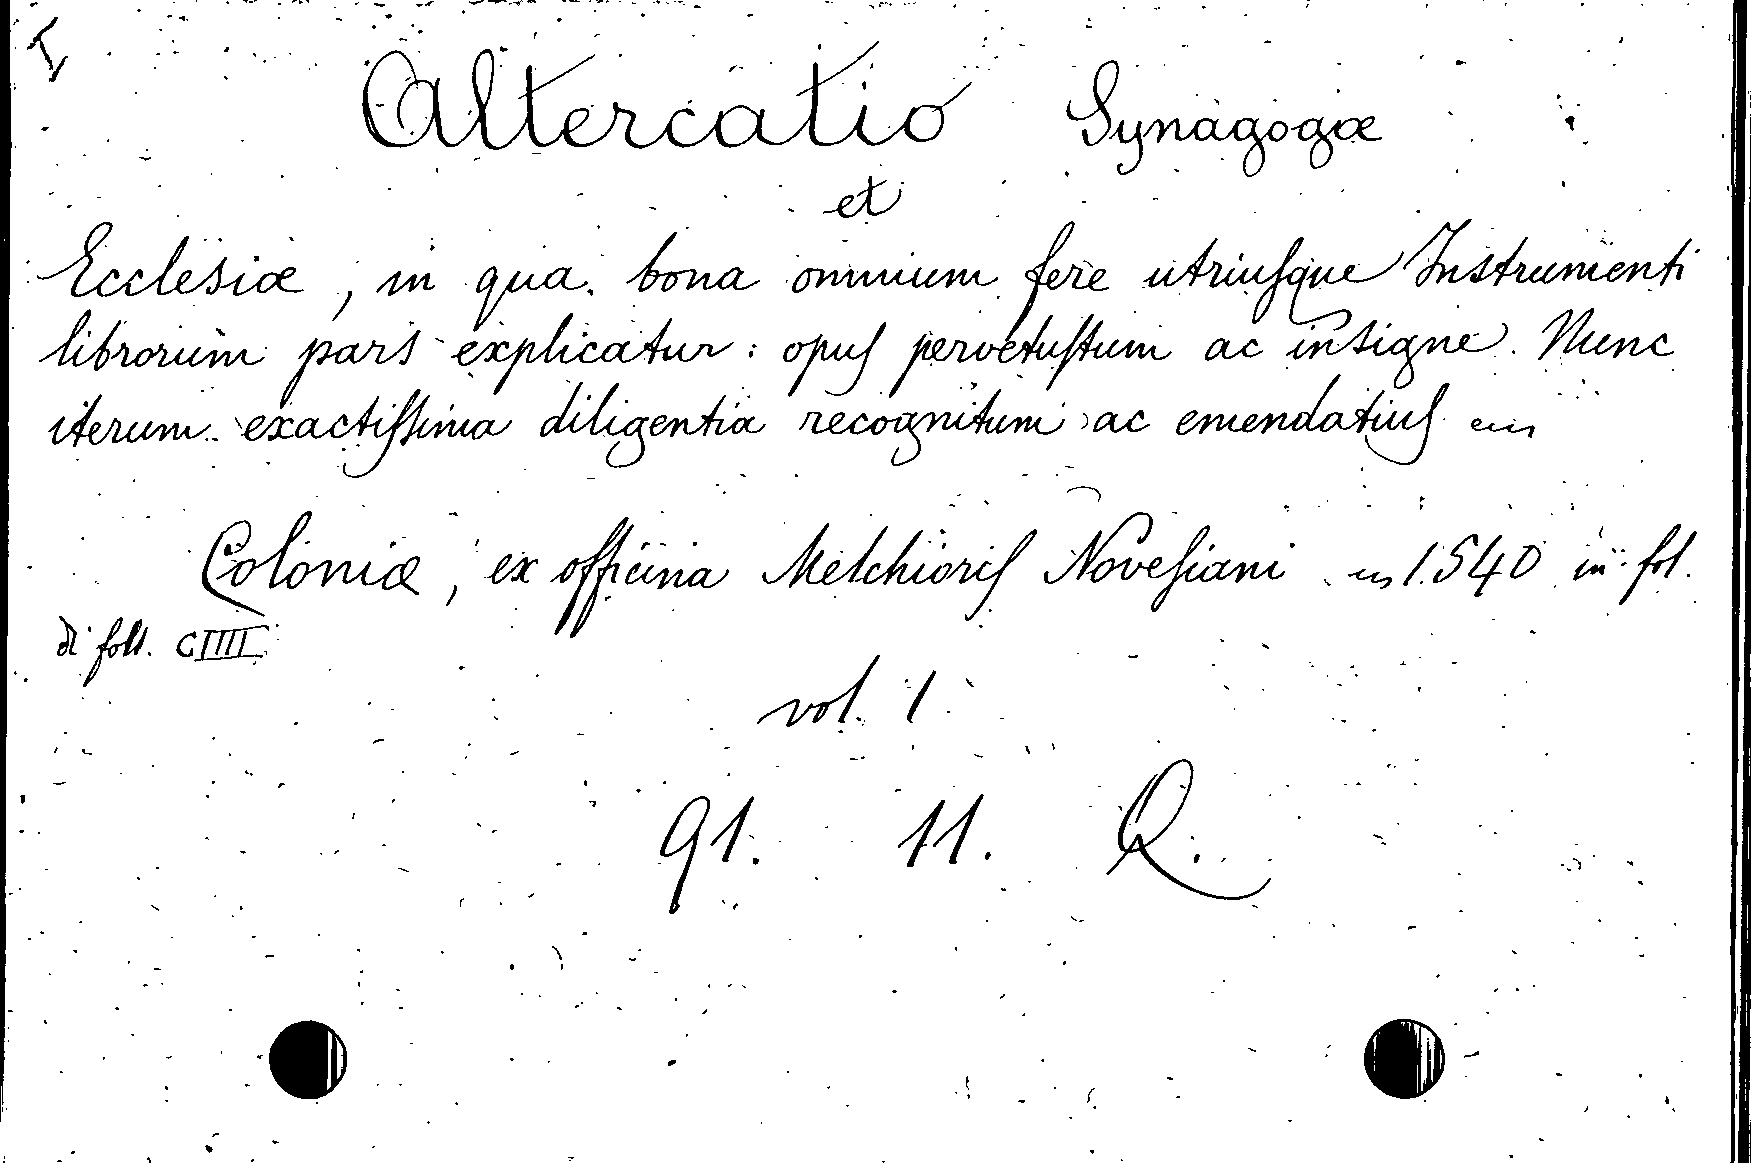 I
Altercatio Synagogæ
et
Ecclesiæ, in qua bona omnium fere utriuſque Instrumenti
librorum pars explicatur: opuſ pervetuſtum ac insigne. Nunc
iterum exactiſſima diligentia recognitum ac emendatiuſ
Coloniæ, ex officina Melchioriſ Noveſiani 1540 in fol.
di foll. CIIII
vol. 1
91. 11. Q.